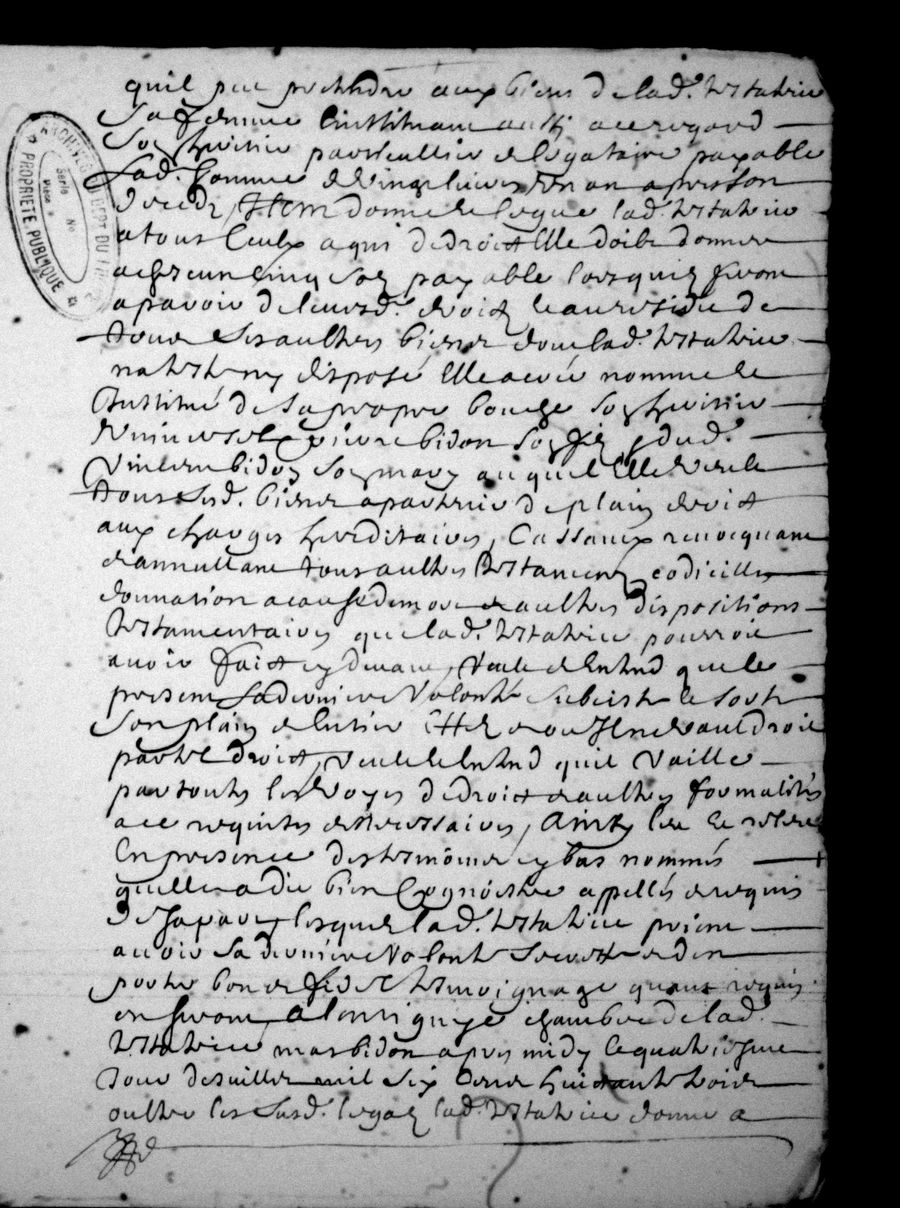 quil peut prethendre aux biens de lad. testatrice
Sa femme Linstituant aussi a ce regard
Son heritier particullier et legataire payable
Lad. Somme de vingt livres un an apres son
deceds, Item donne et legue lad. testatrice
a tous Ceulx a qui de droict Elle doibt donner
a chacun cinq solz payable lorsquilz feront
aparoir de leursd. droictz et au residu de
tous Ses aultres biens dont lad. testatrice
na testé ny disposé Elle a créé nommé et
Institué de sa propre bouche son heritier
universel pierre bidon son filz et dud.
bidon son mary auquel Elle veult
tous sesd. biens apartenir de plain droict
aux charges hereditaires, Cassant revocquant
et annullant tous aultres testamentz codicilles
donnation a cause de mort et aultres dispositions
testamentaires que lad. testatrice pourroit
avoir faict cy devant, Veult et Entend que le
present Sa derniere Volonté Subciste et sorte
Son plain et Entier Effect et ou Il ne vauldroit
par tel droict, veult et Entend quil vaille
par toutes les voyes de droict et aultres formalités
a ce requises et necessaires, Ainsy leu et relleu
En presence des tesmoins cy bas nommés
quelle a dit bien Cognoistre appellés et requis
de sa part lesquels lad. testatrice prient
avoir sa derniere Volonté Secrette et den
porter bon et fidel tesmoignage quant requis
en seront, a chambre de lad.
testatrice mas bidon apres midy le quatriesme
Jour de Juillet mil six cens huictante trois
oultre les susd. legaz lad. testatrice donne a
ARCHIVES DU DEPT DU
PROPRIETE PUBLIQUE
Serie No
Piece